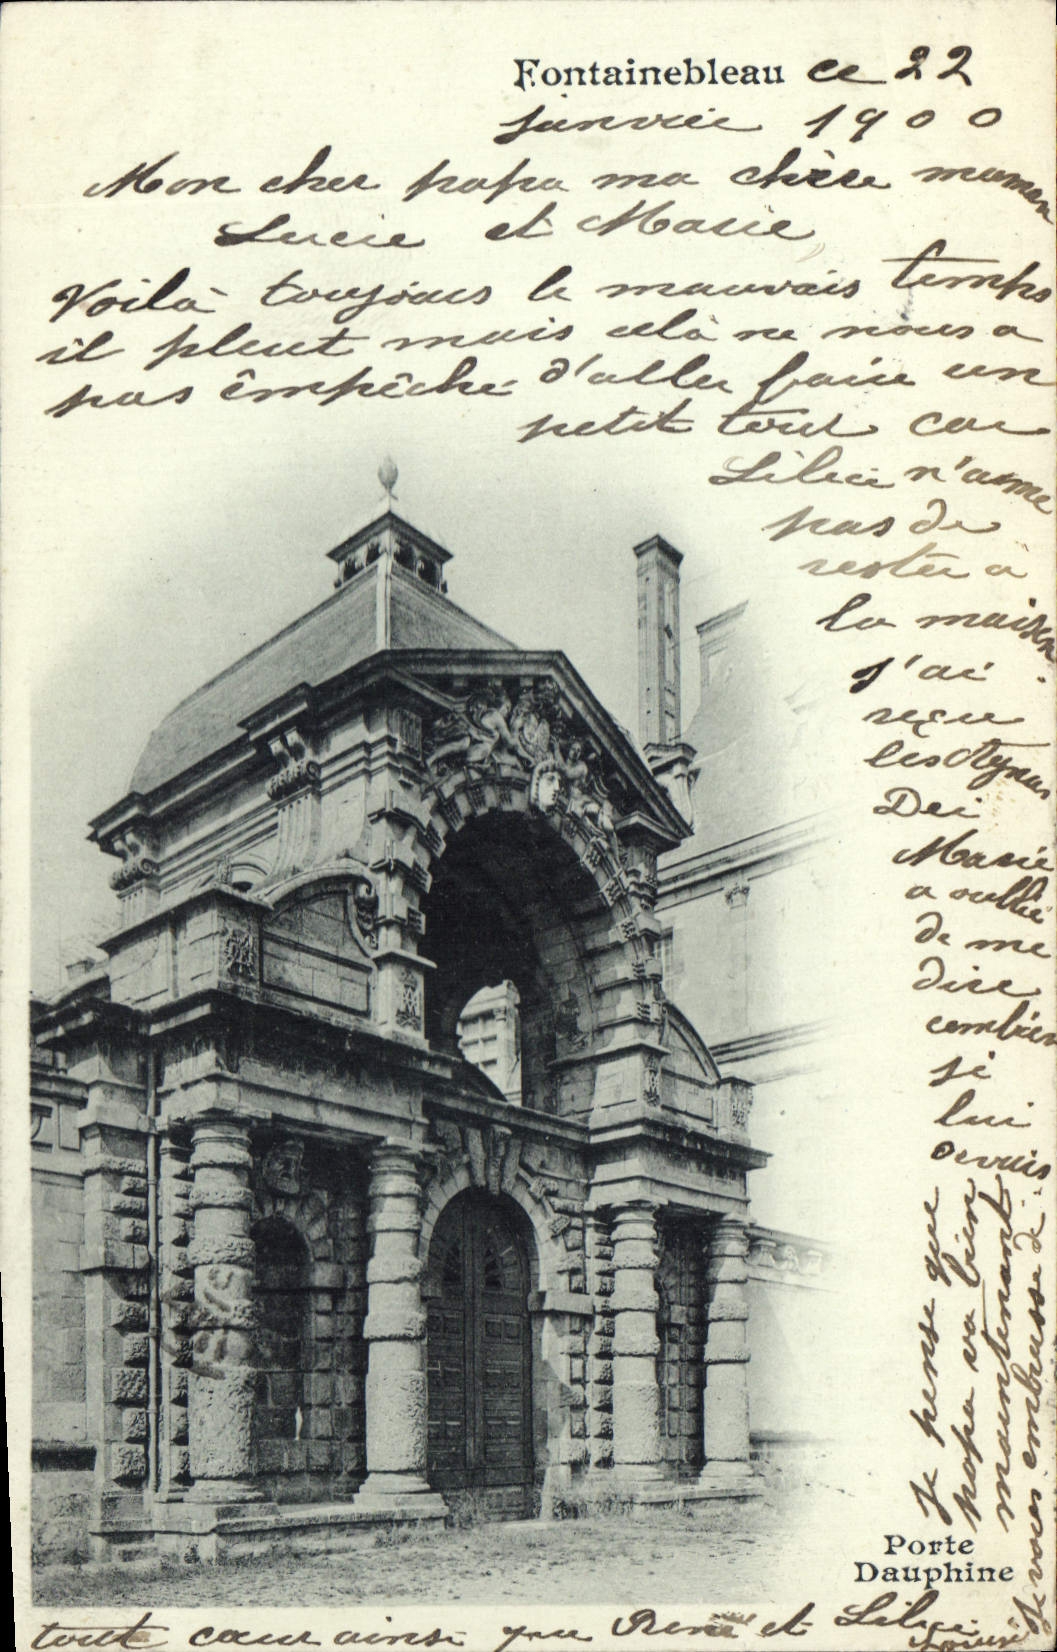 Fontainebleau ce 22
janvier 1900
Mon cher papa ma chère maman
Lucie et Marie
Voilà toujours le mauvais temps
il pleut mais celà ne nous a
pas êmpêché d'aller faire un
petit tour car
Lilie n'aime
pas de
rester à
la maison.
j'ai
reçu
les
Marie
a oublié
de me
dire
combien
je
lui
devais
Je pense que
papa va bien
maintenant.
Je vous embrasse de
tout cœur ainsi que René et Lilie
Porte
Dauphine